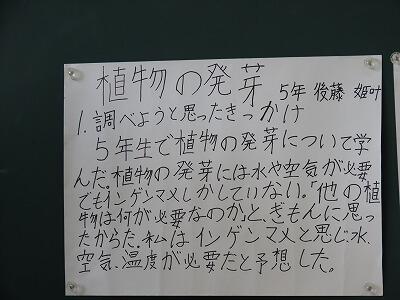 植物の発芽 5年 後藤 姫叶
1.調べようと思ったきっかけ
5年生で植物の発芽について学
んだ。植物の発芽には水や空気が必要
でもインゲンマメしかしていない。「他の植
物は何が必要なのか」と、ぎもんに思っ
たからだ。私はインゲンマメと同じ、水、
空気、温度が必要だと予想した。